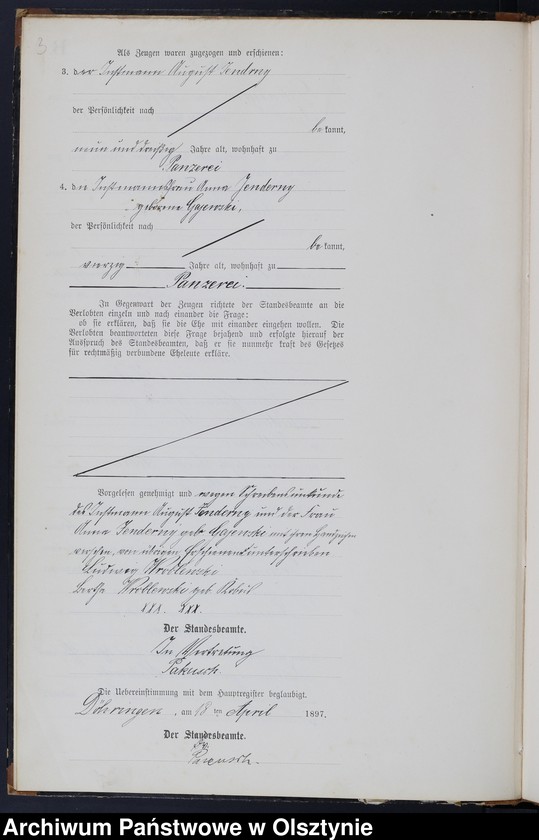 3
Als Zeugen waren zugezogen und erschienen:
3. der Instmann August Jendrny
der Persönlichkeit nach
be kannt,
neun und dreißig Jahre alt, wohnhaft zu
Panzerei
4. die Instmannsfrau Anna Jenderny
geborene Gajewski,
der Persönlichkeit nach
be kannt,
vierzig Jahre alt, wohnhaft zu
Panzerei.
In Gegenwart der Zeugen richtete der Standesbeamte an die
Verlobten einzeln und nach einander die Frage:
ob sie erklären, daß sie die Ehe mit einander eingehen wollen. Die
Verlobten beantworteten diese Frage bejahend und erfolgte hierauf der
Ausspruch des Standesbeamten, daß er sie nunmehr kraft des Gesetzes
für rechtmäßig verbundene Eheleute erkläre.
Vorgelesen genehmigt und wegen Schreibensunkunde
des Instmann August Jenderny und der Frau
Anna Jenderny geb. Gajewski mit ihren Handzeichen
versehen, von übrigen Erschienenen unterschrieben
Ludwig Wroblewski
Bertha Wroblewski geb.
XXX. XXX.
Der Standesbeamte.
In Vertretung
Pakusch.
Die Uebereinstimmung mit dem Hauptregister beglaubigt.
Döhringen, am 18 ten April 1897.
Der Standesbeamte.
I. V.
Pakusch.
Archiwum Państwowe w Olsztynie